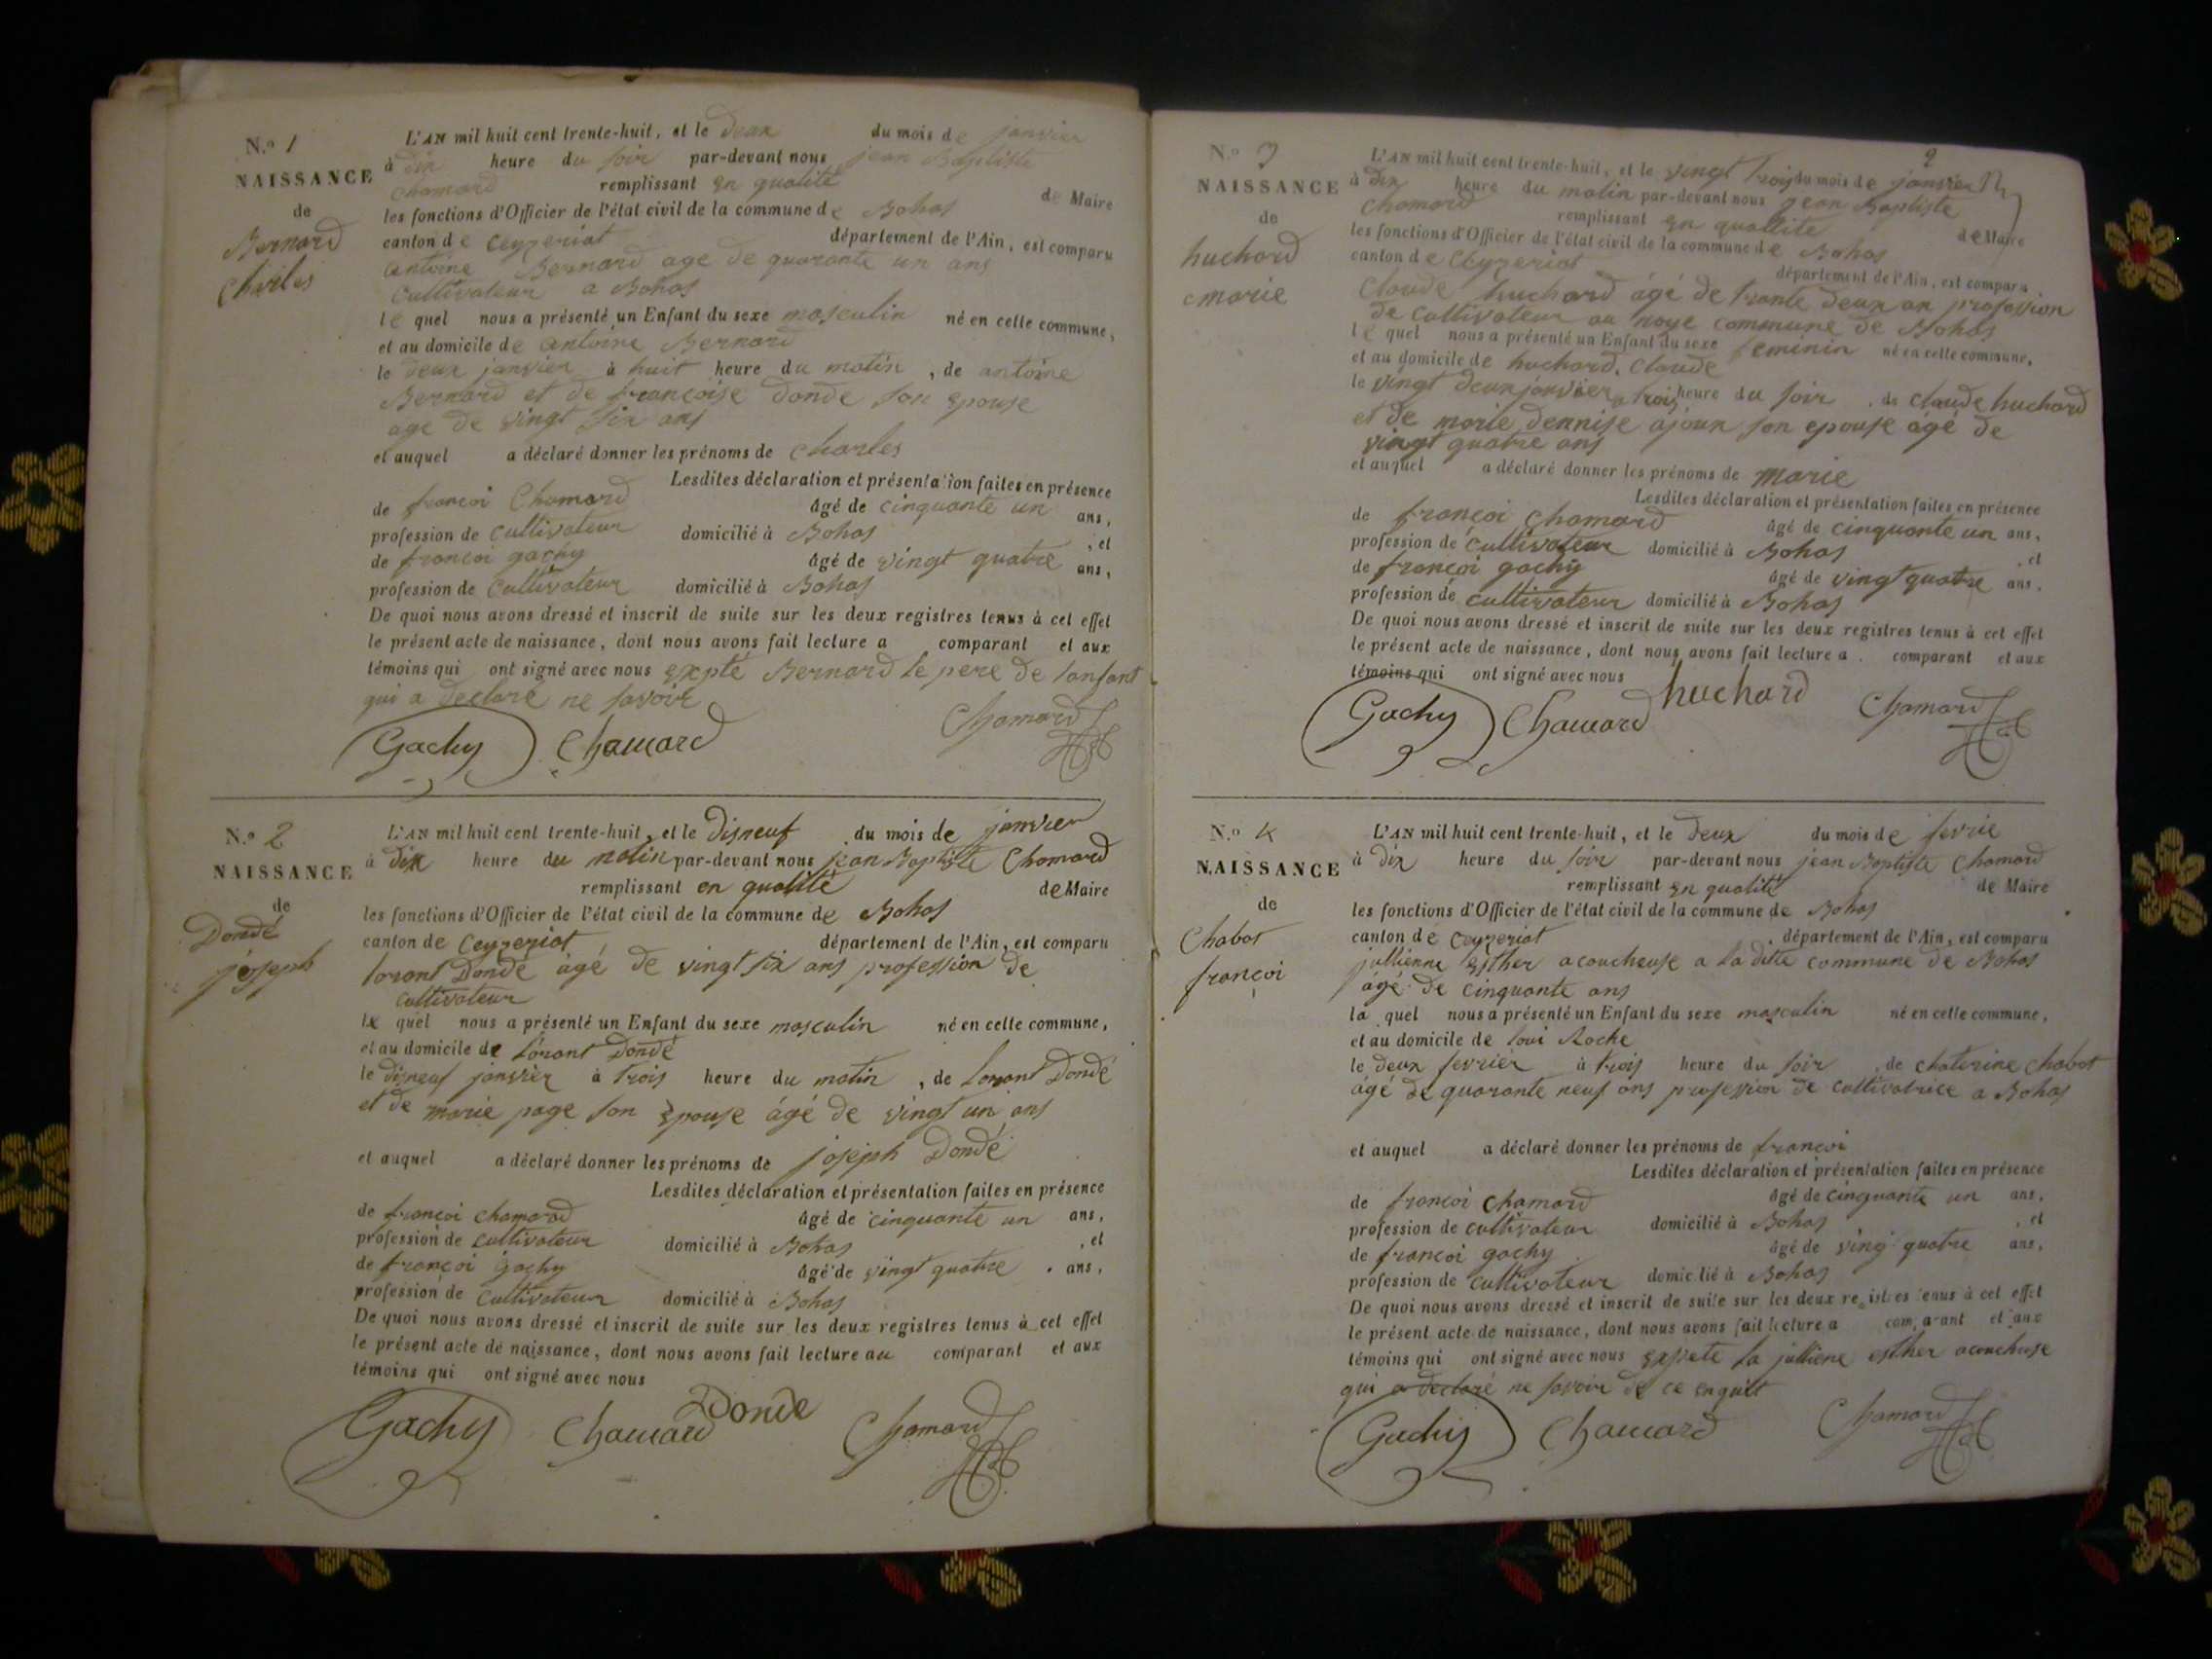 N.o 1
NAISSANCE
de
Bernard
Charles
L'AN mil huit cent trente-huit, et le deux du mois de janvier
à dix heure du soir par-devant nous jean Baptiste
chamard remplissant en qualité de Maire
les fonctions d'Officier de l'état civil de la commune de Bohas
canton de ceyzeriat département de l'Ain, est comparu
antoine Bernard age de quarante un ans
cultivateur a Bohas
le quel nous a présenté un Enfant du sexe masculin né en celle commune,
et au domicile de antoine Bernard
le deux janvier à huit heure du matin, de antoine
Bernard et de françoise donde son epouse
age de vingt six ans
et auquel a déclaré donner les prénoms de charles
Lesdites déclaration et présentation faites en présence
de françoi Chamard âgé de cinquante un ans,
profession de cultivateur domicilié à Bohas, et
de françoi gachy âgé de vingt quatre ans,
profession de cultivateur domicilié à Bohas
De quoi nous avons dressé et inscrit de suite sur les deux registres tenus à cet effet
le présent acte de naissance, dont nous avons fait lecture a comparant et aux
témoins qui ont signé avec nous expté Bernard le pere de lanfant
qui a declaré ne savoir
Gachy Chamard Chamard
N.o 2
NAISSANCE
de
Dondé
joseph
L'AN mil huit cent trente-huit, et le disneuf du mois de janvier
à dix heure du matin par-devant nous jean Baptiste Chamard
remplissant en qualité de Maire
les fonctions d'Officier de l'état civil de la commune de Bohas
canton de Ceyzeriat département de l'Ain, est comparu
lorant Dondé âgé de vingt six ans profession de
cultivateur
le quel nous a présenté un Enfant du sexe masculin né en celle commune,
et au domicile de lorant Dondé
le disneuf janvier à trois heure du matin, de lorant Dondé
et de marie page son epouse âgé de vingt un ans
et auquel a déclaré donner les prénoms de joseph Dondé
Lesdites déclaration et présentation faites en présence
de françoi chamard âgé de cinquante un ans,
profession de cultivateur domicilié à Bohas, et
de françoi gachy âgé de vingt quatre ans,
profession de cultivateur domicilié à Bohas
De quoi nous avons dressé et inscrit de suite sur les deux registres tenus à cet effet
le présent acte de naissance, dont nous avons fait lecture au comparant et aux
témoins qui ont signé avec nous
Gachy Chamard Donde Chamard
2
N.o 3
NAISSANCE
de
huchard
marie
L'AN mil huit cent trente-huit, et le vingt trois du mois de janvier
à dix heure du matin par-devant nous jean Baptiste
Chamard remplissant en quallité de Maire
les fonctions d'Officier de l'état civil de la commune de Bohas
canton de Ceyzeriat département de l'Ain, est comparu
Claude huchard âgé de trante deux an profession
de cultivateur au noye commune de Bohas
le quel nous a présenté un Enfant du sexe feminin né en celle commune,
et au domicile de huchard, Claude
le vingt deux janvier a trois heure du soir, de claude huchard
et de marie dennise ajoux son epouse âgé de
vingt quatre ans
et auquel a déclaré donner les prénoms de marie
Lesdites déclaration et présentation faites en présence
de françoi chamard âgé de cinquante un ans,
profession de cultivateur domicilié à Bohas, et
de françoi gachy âgé de vingt quatre ans,
profession de cultivateur domicilié à Bohas
De quoi nous avons dressé et inscrit de suite sur les deux registres tenus à cet effet
le présent acte de naissance, dont nous avons fait lecture a comparant et aux
témoins qui ont signé avec nous
Gachy Chamard huchard Chamard
N.o 4
NAISSANCE
de
Chabot
françoi
L'AN mil huit cent trente-huit, et le deux du mois de fevrie
à dix heure du soir par-devant nous jean Baptiste Chamard
remplissant en qualité de Maire
les fonctions d'Officier de l'état civil de la commune de Bohas
canton de ceyzeriat, département de l'Ain, est comparu
jullienne esther acoucheuse a la ditte commune de Bohas
âgé de cinquante ans
la quel nous a présenté un Enfant du sexe masculin né en celle commune,
et au domicile de loui Roche
le deux fevrier à trois heure du soir, de chaterine Chabot
âgé de quarante neuf ans profession de cultivatrice a Bohas
et auquel a déclaré donner les prénoms de françoi
Lesdites déclaration et présentation faites en présence
de françoi chamard âgé de cinquante un ans,
profession de cultivateur domicilié à Bohas, et
de françoi gachy âgé de ving quatre ans,
profession de cultivateur domicilié à Bohas
De quoi nous avons dressé et inscrit de suite sur les deux registres tenus à cet effet
le présent acte de naissance, dont nous avons fait lecture a comparant et aux
témoins qui ont signé avec nous la julliene esther acoucheuse
qui a declaré ne savoir de ce enquit
Gachy Chamard Chamard